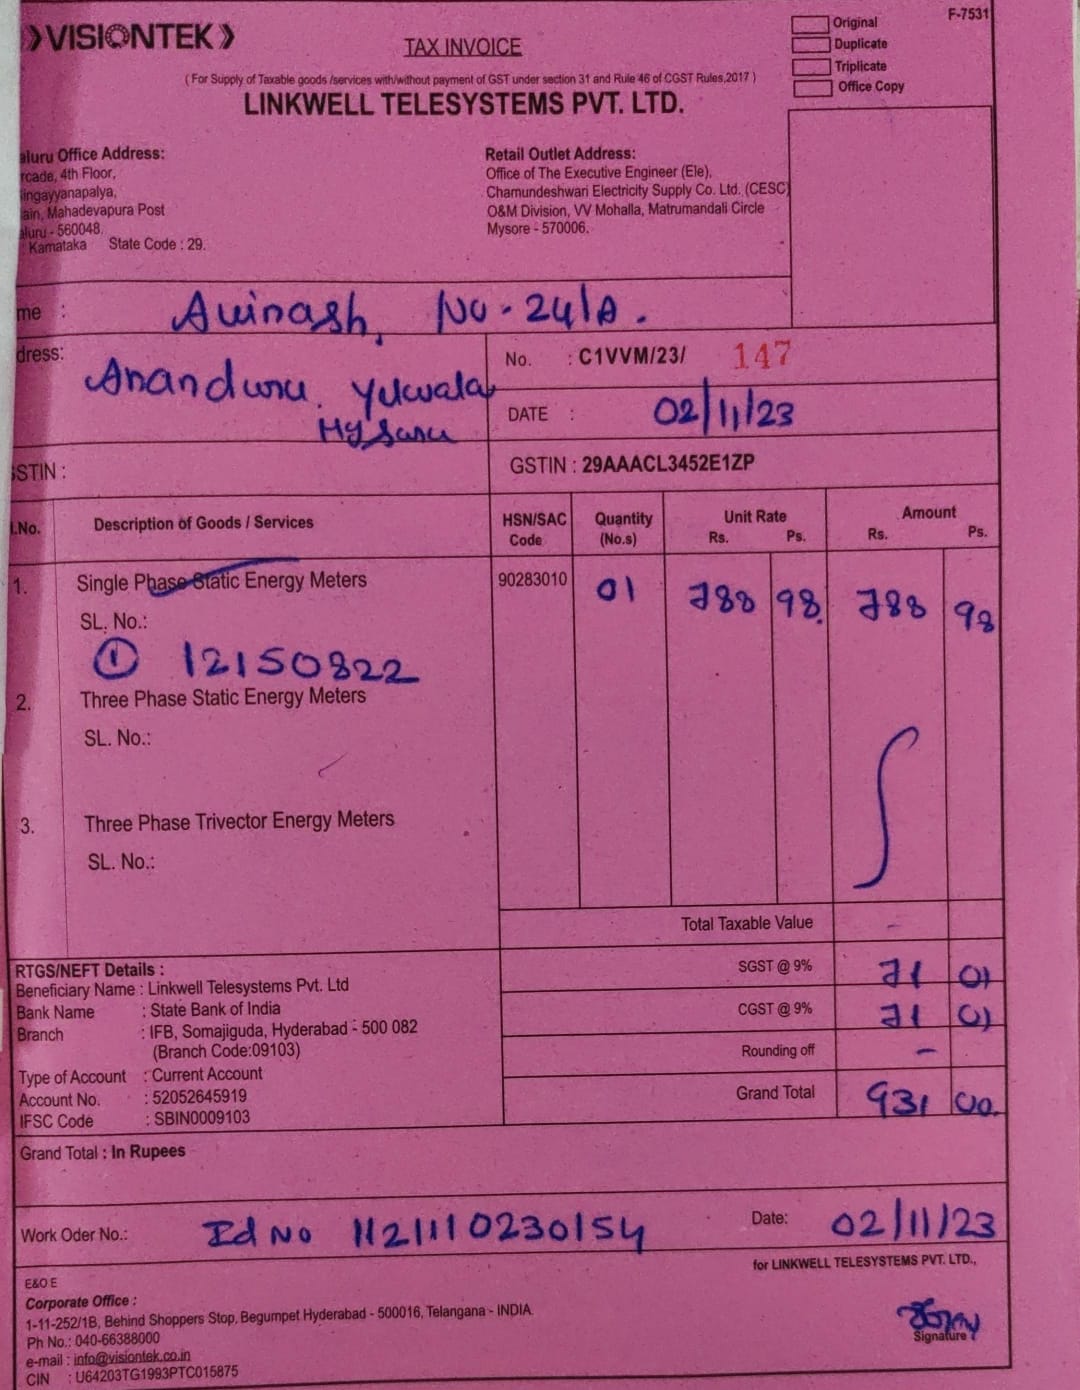 VISIONTEK
F-7531
Original
Duplicate
Triplicate
Office Copy
TAX INVOICE
( For Supply of Taxable goods /services with/without payment of GST under section 31 and Rule 46 of CGST Rules,2017 )
LINKWELL TELESYSTEMS PVT. LTD.
aluru Office Address:
rcade, 4th Floor,
lingayyanapalya,
ain, Mahadevapura Post
aluru - 560048.
Karnataka State Code : 29.
Retail Outlet Address:
Office of The Executive Engineer (Ele),
Chamundeshwari Electricity Supply Co. Ltd. (CESC)
O&M Division, VV Mohalla, Matrumandali Circle
Mysore - 570006.
me : Avinash, No - 241A.
dress: Ananduru. Yelwala
Mysuru
No. : C1VVM/23/ 147
DATE : 02/11/23
GSTIN : 29AAACL3452E1ZP
STIN :
.No. Description of Goods / Services HSN/SAC Code Quantity (No.s) Unit Rate Rs. Ps. Amount Rs. Ps.
1. Single Phase Static Energy Meters 90283010 01 788 98. 788 98
SL. No.:
① 12150822
2. Three Phase Static Energy Meters
SL. No.:
3. Three Phase Trivector Energy Meters
SL. No.:
Total Taxable Value -
SGST @ 9% 71 01
CGST @ 9% 71 01
Rounding off -
Grand Total 931 00.
RTGS/NEFT Details :
Beneficiary Name : Linkwell Telesystems Pvt. Ltd
Bank Name : State Bank of India
Branch : IFB, Somajiguda, Hyderabad - 500 082
(Branch Code:09103)
Type of Account : Current Account
Account No. : 52052645919
IFSC Code : SBIN0009103
Grand Total : In Rupees
Work Oder No.: Id No 1121110230154 Date: 02/11/23
for LINKWELL TELESYSTEMS PVT. LTD.,
E&O E
Corporate Office :
1-11-252/1B, Behind Shoppers Stop, Begumpet Hyderabad - 500016, Telangana - INDIA.
Ph No.: 040-66388000
e-mail : info@visiontek.co.in
CIN : U64203TG1993PTC015875
Signature